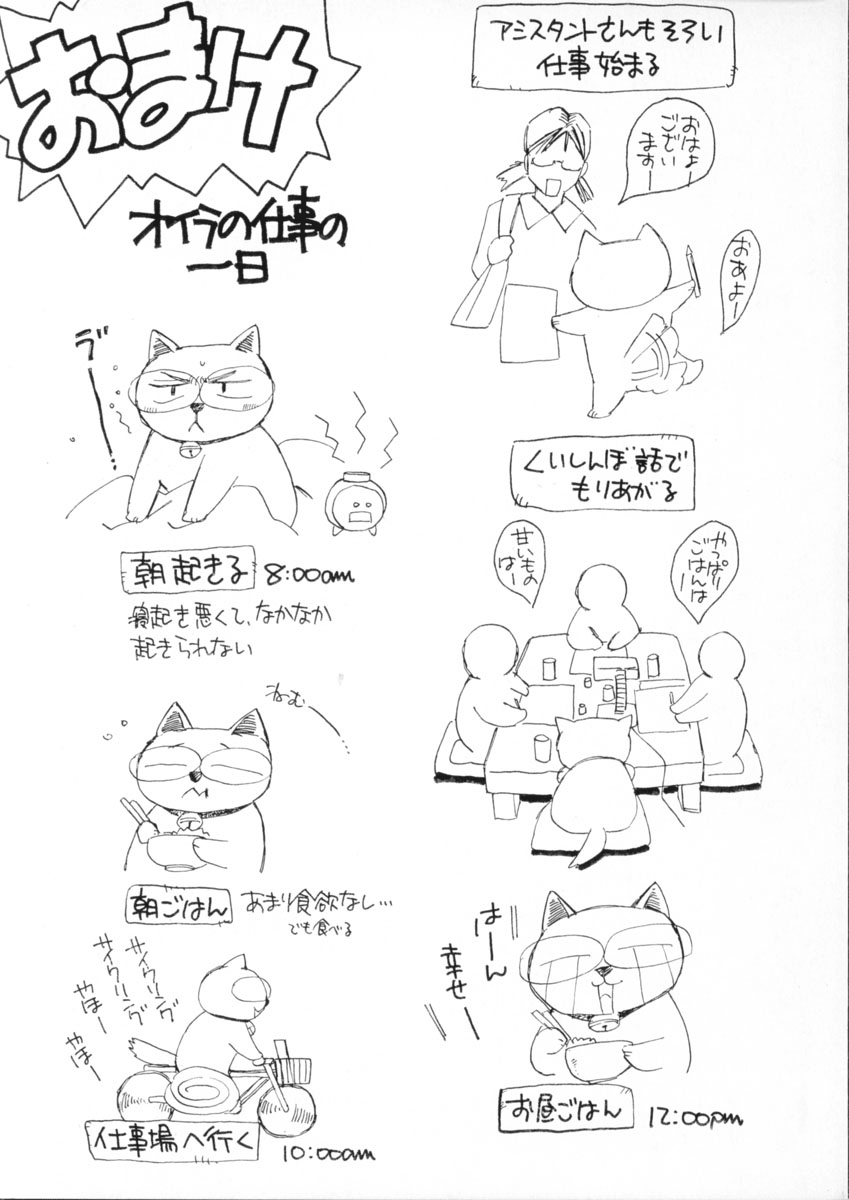 おまけ
オイラの仕事の
一日
ヴーー…
朝起きる 8:00am
寝起き悪くて、なかなか
起きられない
ねむ……
朝ごはん あまり食欲なし…
でも食べる
サイクリング
サイクリング
やほー
やほー
仕事場へ行く 10:00am
アシスタントさんもそろい
仕事始まる
おはよー
ございい
ますー
おあよー
くいしんぼ話で
もりあがる
やっぱりー
ごはんは
甘いもの
はー
はーん
幸せー
お昼ごはん 12:00pm